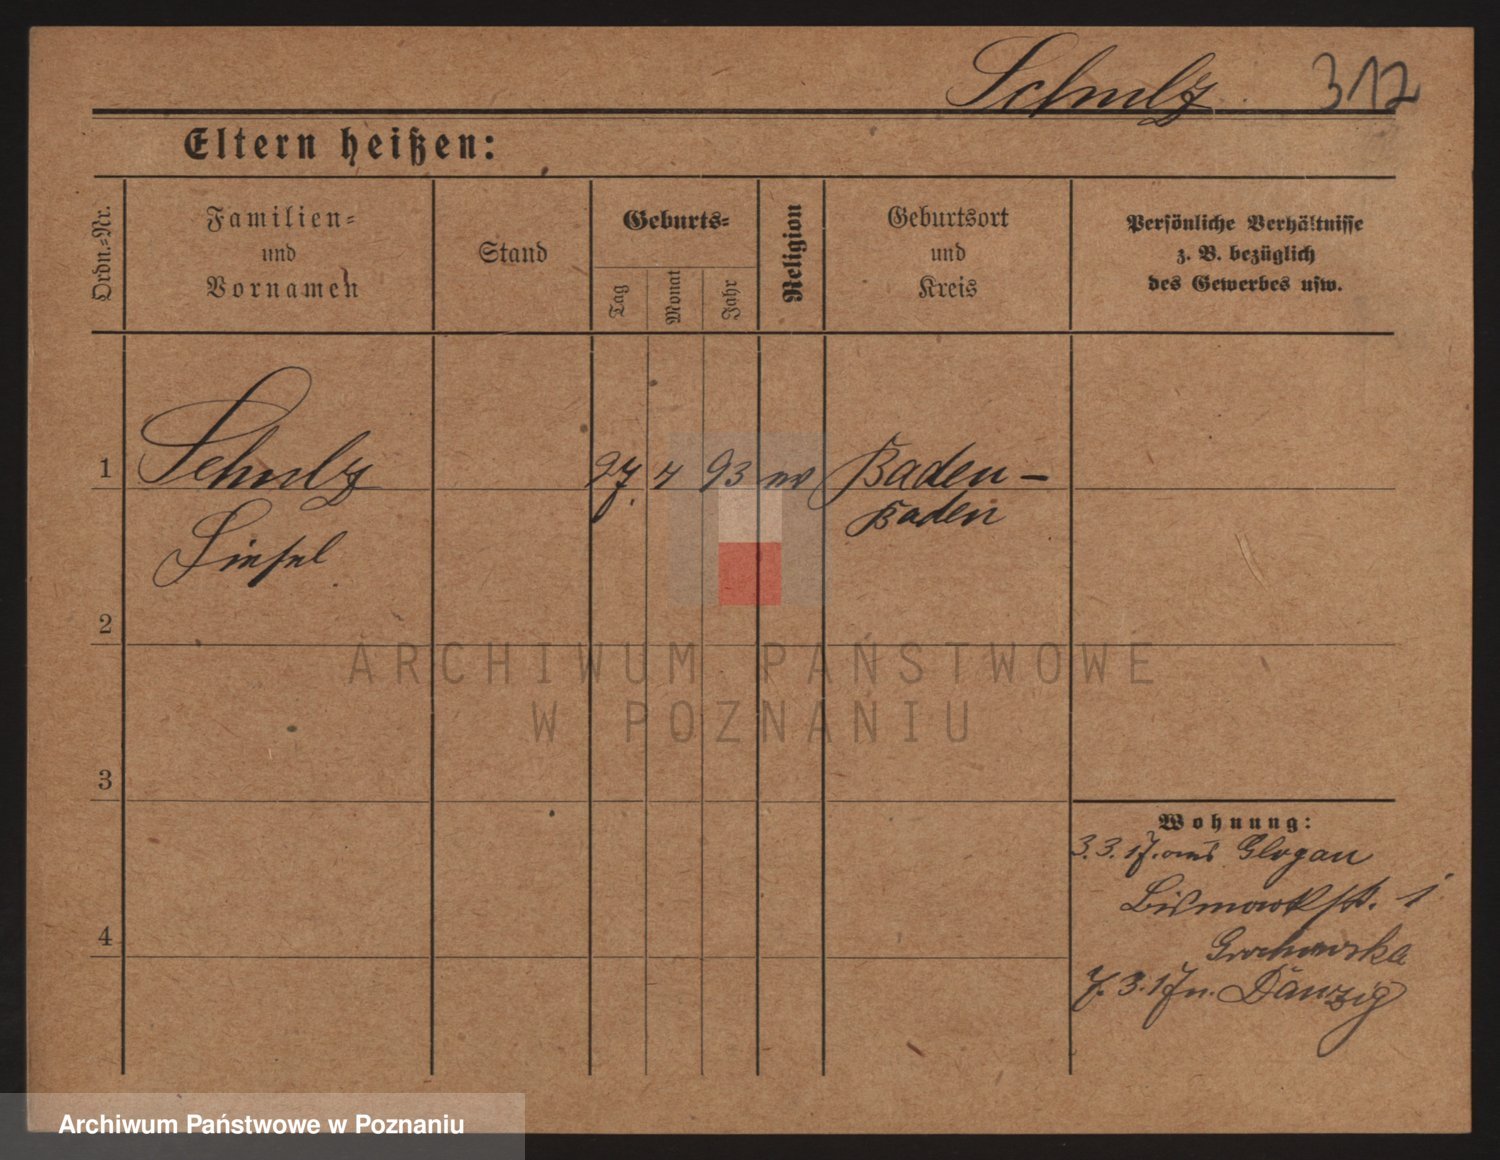 Schulz. 312
Eltern heißen:
Ordn.=Nr.
Familien=
und
Vornamen
Stand
Geburts=
Tag
Monat
Jahr
Religion
Geburtsort
und
Kreis
Persönliche Verhältnisse
z. B. bezüglich
des Gewerbes usw.
1 Schulz 27. 4 93 ev Baden-
Baden
Liesel
2
3
4
Wohnung:
3.3.17. aus Glogau
Bismarkstr. 1
Grochowska
7.3.17 n. Danzig
ARCHIWUM PAŃSTWOWE
W POZNANIU
Archiwum Państwowe w Poznaniu